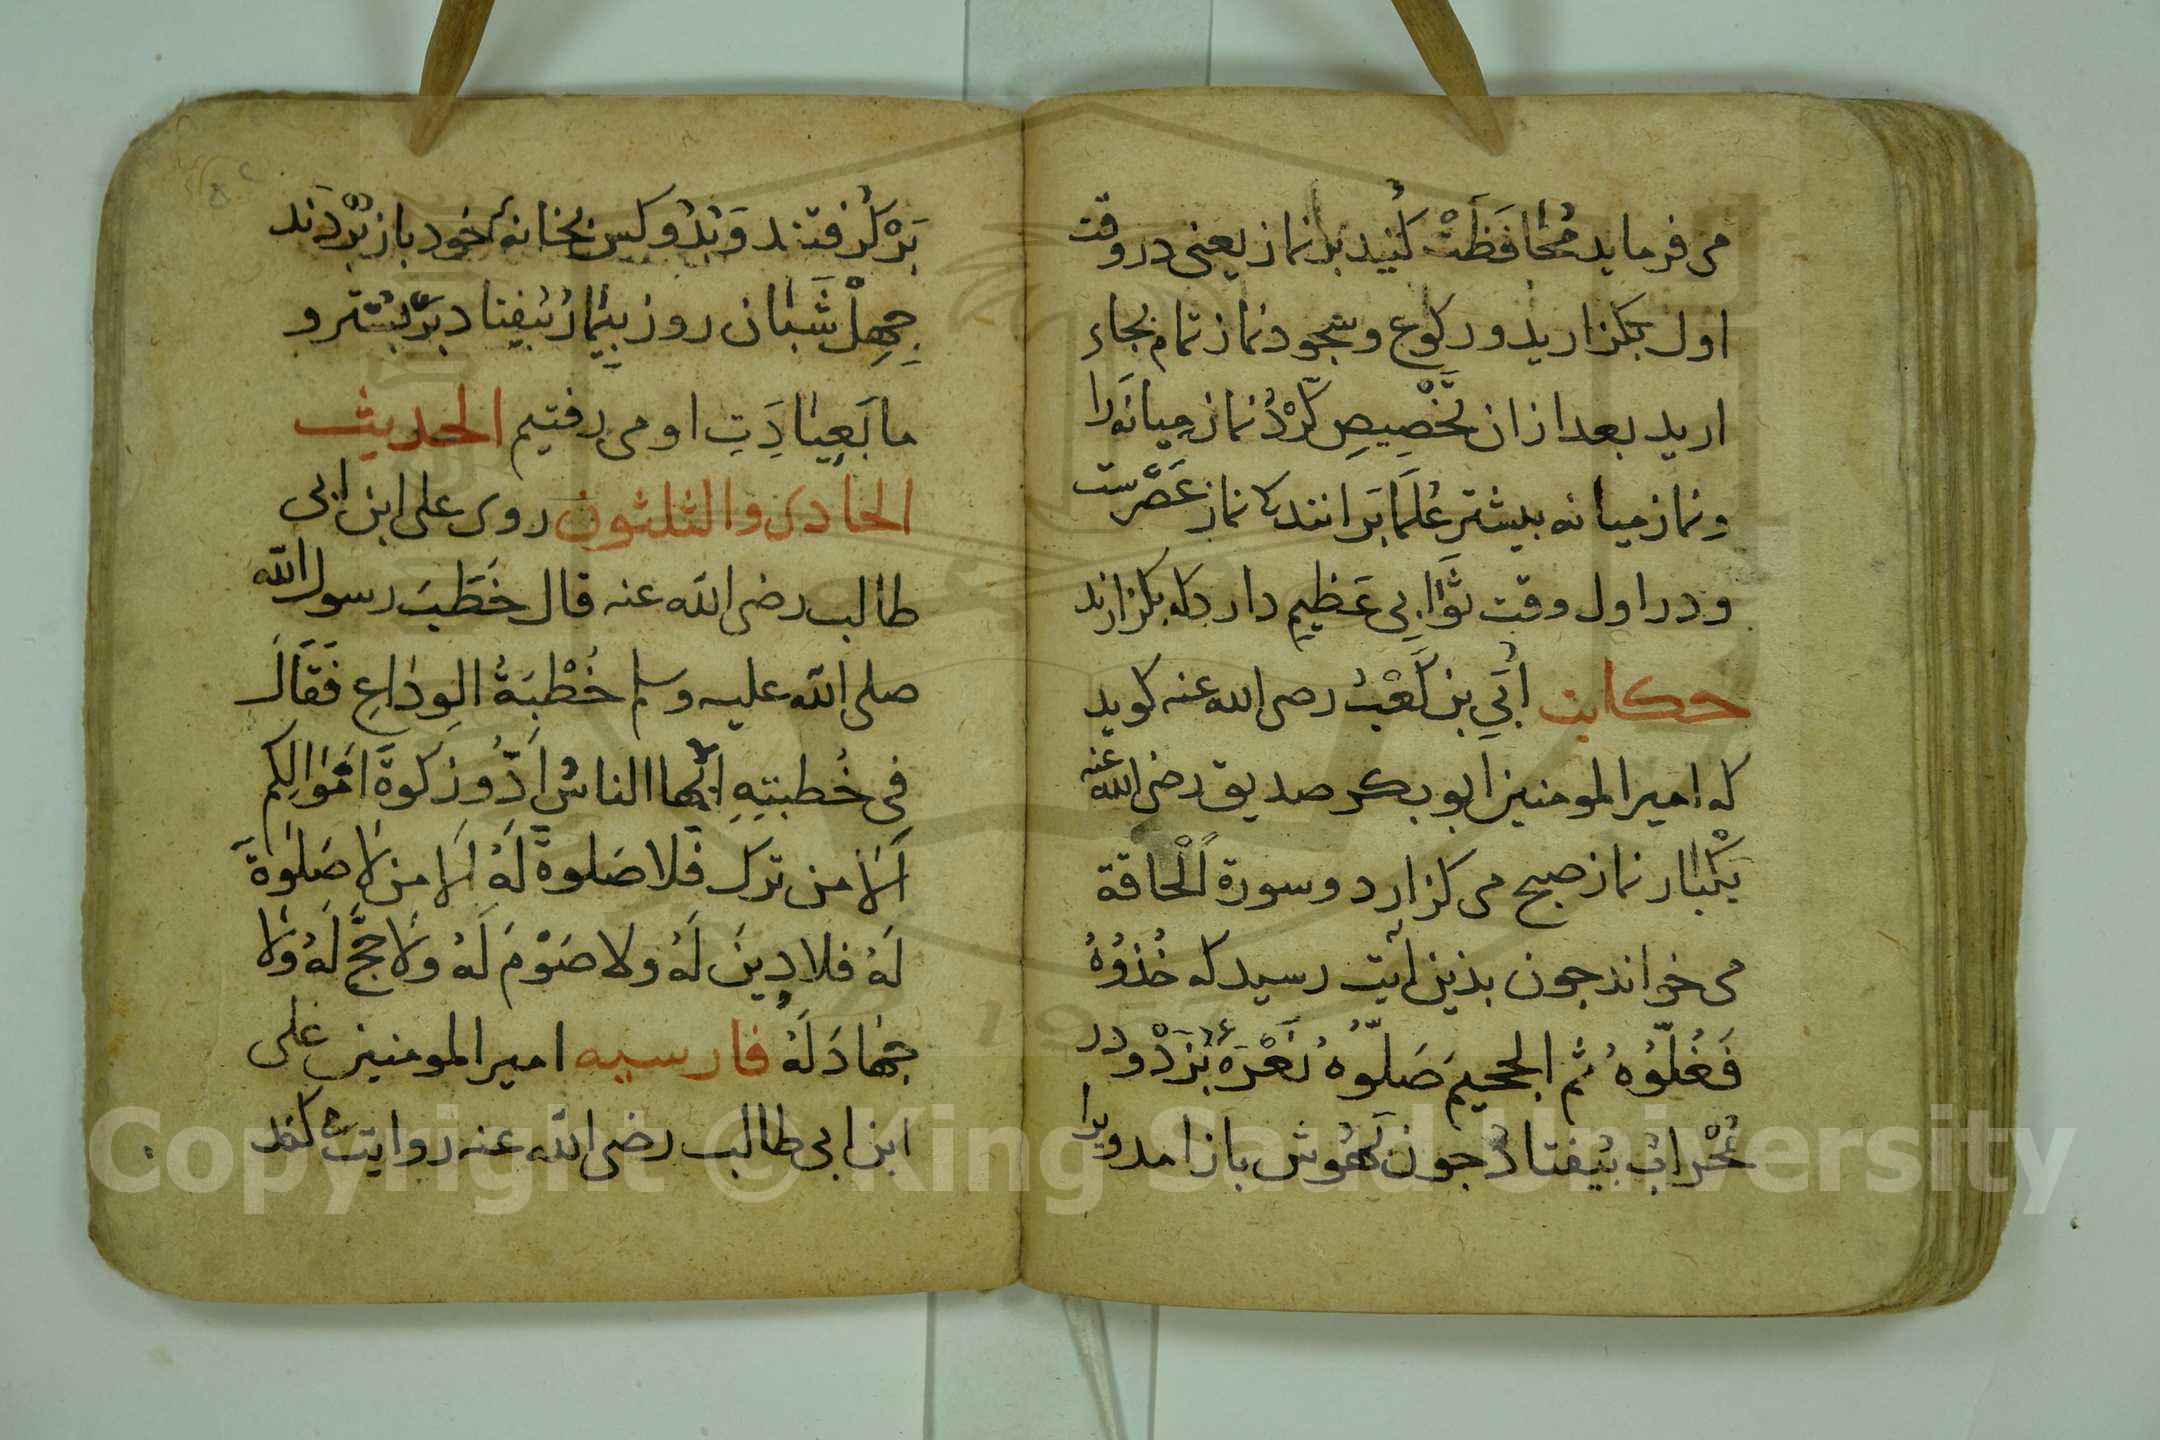 می فرماید مُحٰافَظَتْ کُنید بر نماز یعنی در وقت
اول بکزارید و رکوع و سجود نماز تمام بجاء
ارید بعد ازان تَخْصِیصِ کَرْدُ نماز میانَه را
و نماز میانه بیشتر عُلَمٰا بَرانند کا نماز عَصْرست
و در اول وقت ثَوٰابی عَظیم دارد که بکزارند
حکایت اُبَیِ بن کَعْب رضی الله عنه کوید
که امیرالمومنین ابو بکر صدیق رضی الله عنه
یَکْبٰار نماز صبح می کزارد و سورة اَلْحاقة
می خواند جون بدین اَیت رسید که خُذُوُهُ
فَغُلّوُهُ ثم الجحیمَ صَلّوُهُ نَعْرَهٔ بُزَدْ و در
مُحْراب بُیفتادُ جون بَهُوش باز امد ویرا
بَرْ کُرفتند وَ بُدُوکس بخانهٔ خود باز بُرْدَند
جِهِلْ شَبٰان روز بیٖمٰار بُیفِتاد بَرّ بُسْتَر و
ما بَعِیٰادَتِ او می رفتیم الحدیث
الحادی والثلثون روی علی ابن ابی
طالب رضی الله عنه قال خَطَبَ رسول الله
صلی الله علیه وسلم خُطْبَةُ الوِدٰاعِ فَقٰالَ
فی خُطبتِهِ ایُّها الناسُ اَدُّو زکوةَ امْوٰالِکم
اَلاٰ من ترک فَلا صَلوةَ لَهُ اَلا من لاٰ صَلوٰةَ
لَهُ فلا دِینَ لَهُ ولا صَوْمَ لَهُ ولاٰ حَجَّ لَهُ ولاٰ
جِهٰادَ لَهُ فارسیه امیرالمومنین علی
ابن ابی طالب رضی الله عنه روایت کند
Copyright © King Saud University
1957